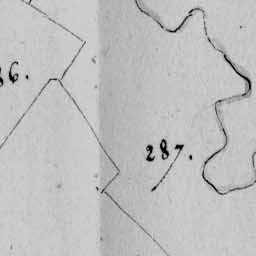 86.
287.